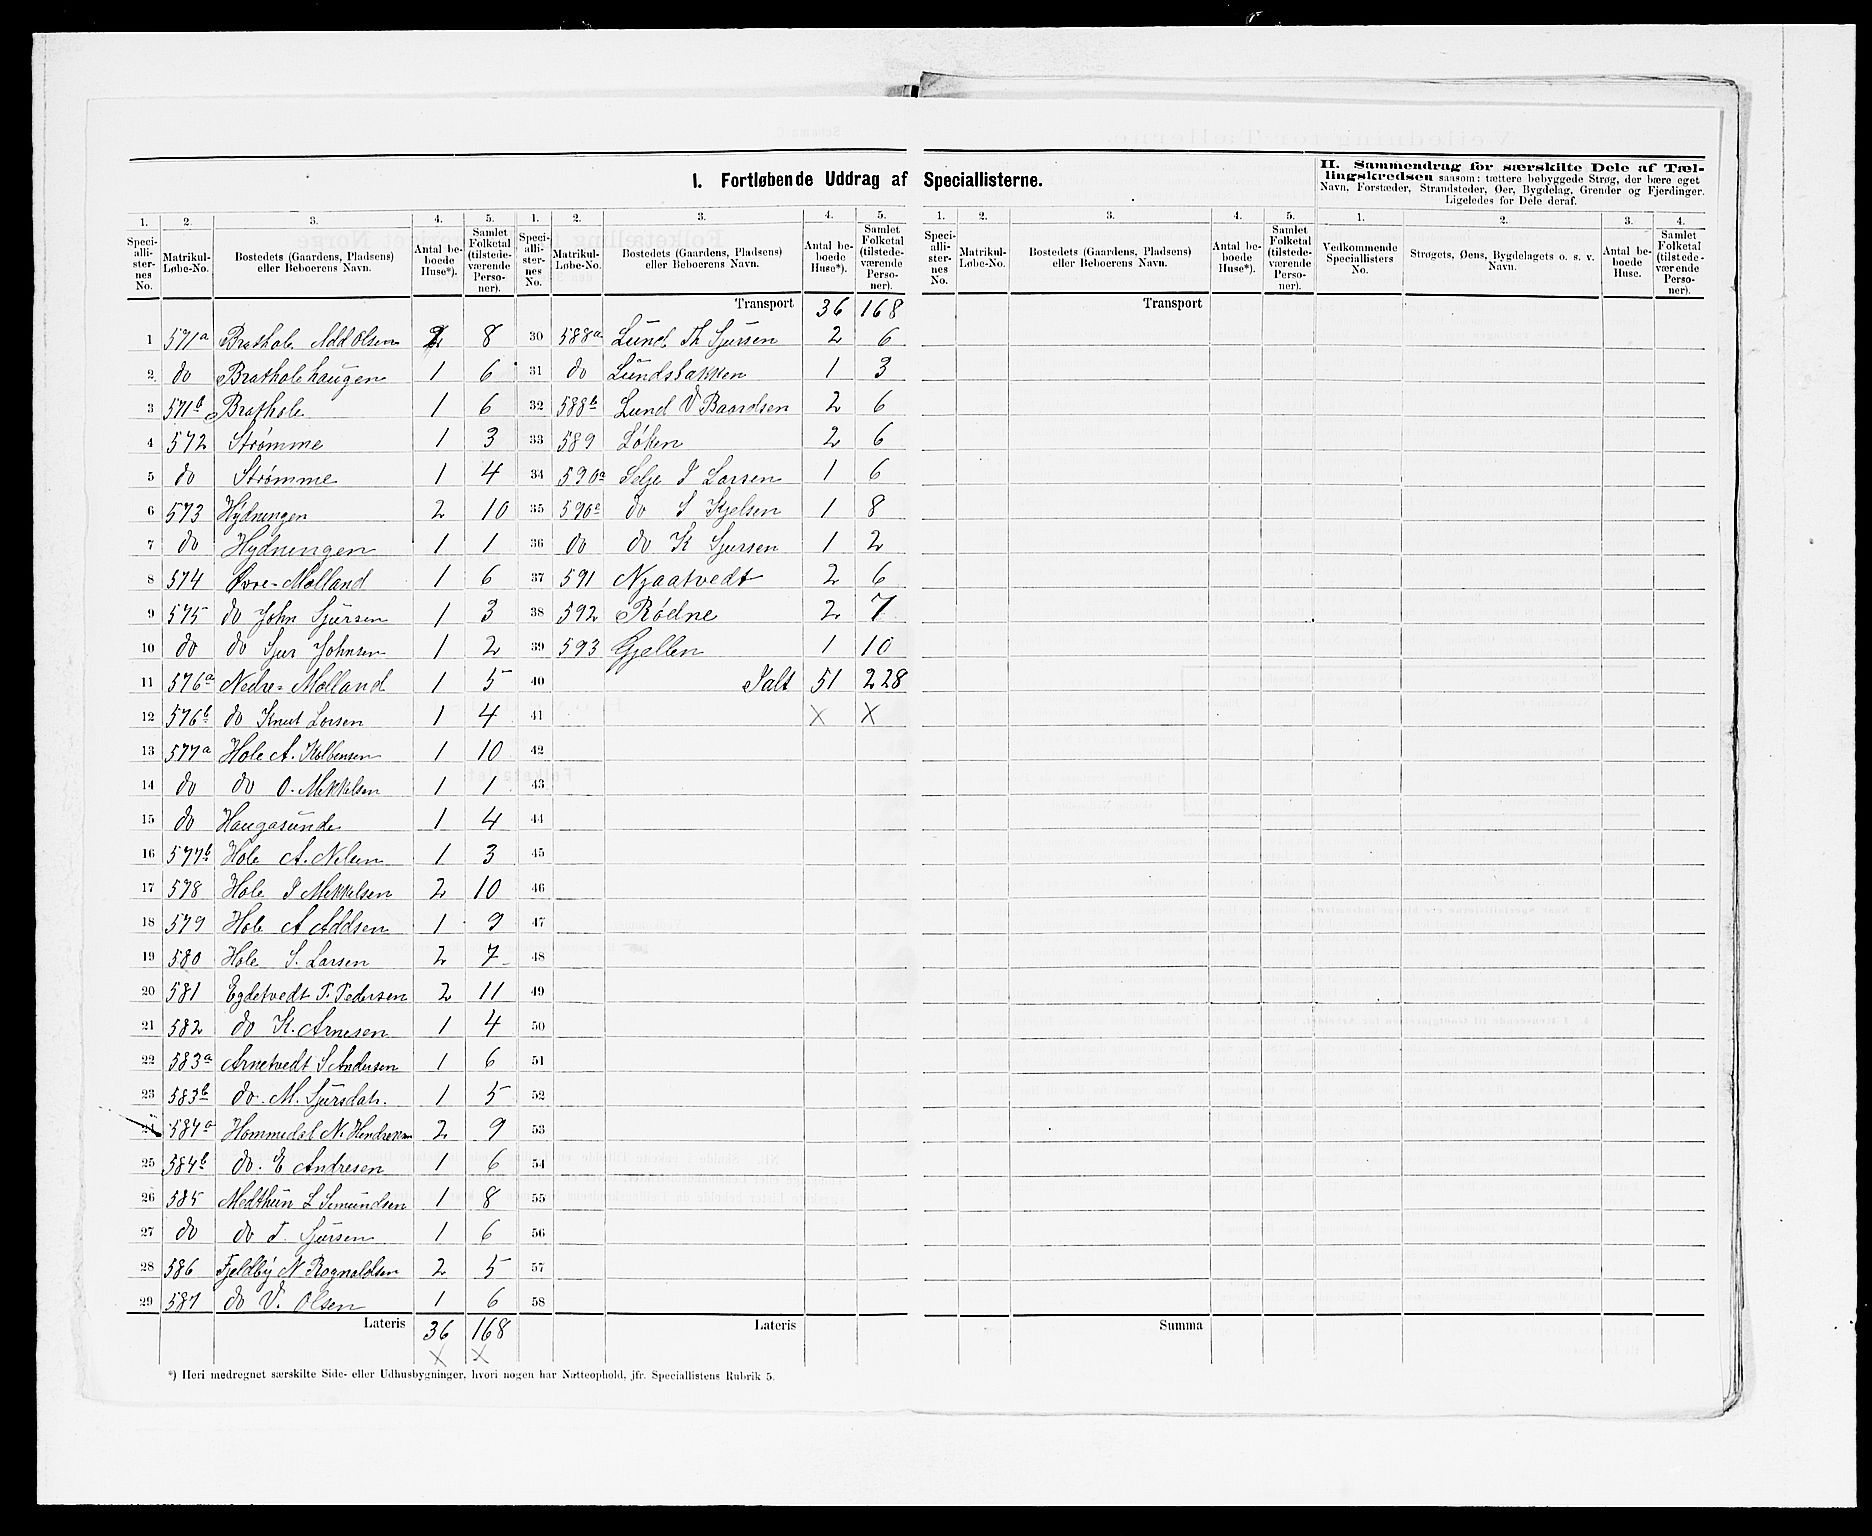 I. Fortløbende Uddrag af Speciallisterne.
II. Sammendrag for særskilte Dele af Tællingskredsen saasom: tættere bebyggede Strøg, der bære eget Navn, Forstæder, Strandsteder, Øer, Bygdelag, Grender og Fjerdinger. Ligeledes for Dele deraf.
1. 2. 3. 4. 5. 1. 2. 3. 4. 5. 1. 2. 3. 4. 5. 1. 2. 3. 4.
Speciallisternes No. Matrikul-Løbe-No. Bostedets (Gaardens, Pladsens) eller Beboerens Navn. Antal beboede Huse*). Samlet Folketal (tilstedeværende Personer).
Speciallisternes No. Matrikul-Løbe-No. Bostedets (Gaardens, Pladsens) eller Beboerens Navn. Antal beboede Huse*). Samlet Folketal (tilstedeværende Personer).
Speciallisternes No. Matrikul-Løbe-No. Bostedets (Gaardens, Pladsens) eller Beboerens Navn. Antal beboede Huse*). Samlet Folketal (tilstedeværende Personer).
Vedkommende Speciallisters No. Strøgets, Øens, Bygdelagets o. s. v. Navn. Antal beboede Huse. Samlet Folketal (tilstedeværende Personer).
1 571a Brathole Add Olsen 2 8
2 do Bratholehaugen 1 6
3 571b Brathole 1 6
4 572 Strømme 1 3
5 do Strømme 1 4
6 573 Hydningen 2 10
7 do Hydningen 1 1
8 574 Øvre-Molland 1 6
9 575 do John Sjursen 1 3
10 do do Sjur Johnsen 1 2
11 576a Nedre-Molland 1 5
12 576b do Knut Larsen 1 4
13 577a Hole A. Kolbensen 1 10
14 do do O. Mekkelsen 1 1
15 do Haugasunde 1 4
16 577b Hole A. Nilsen 1 3
17 578 Hole J Mekkelsen 2 10
18 579 Hole A Addsen 1 9
19 580 Hole S. Larsen 2 7
20 581 Egdetvedt P. Pedersen 2 11
21 582 do K. Arnesen 1 4
22 583a Arnetvedt S Andersen 1 6
23 583b do M. Sjursdatr. 1 5
24 584a Hommedal N. Hendreksen 2 9
25 584b do. E Andresen 1 6
26 585 Medthun L Semundsen 1 8
27 do do T. Sjursen 1 6
28 586 Fjeldby N Rognaldsen 2 5
29 587 do V. Olsen 1 6
Lateris 36 168
X X
Transport 36 168
30 588a Lund Th Sjursen 2 6
31 do Lundsbakken 1 3
32 588b Lund V Baardsen 2 6
33 589 Løken 2 6
34 590a Selje I Larsen 1 6
35 590a do S Kjelsen 1 8
36 do do K Sjursen 1 2
37 591 Njaatvedt 2 6
38 592 Rødne 2 7
39 593 Gjellen 1 10
40 Ialt 51 228
41 X X
42
43
44
45
46
47
48
49
50
51
52
53
54
55
56
57
58
Lateris
Transport
Summa
*) Heri medregnet særskilte Side- eller Udhusbygninger, hvori nogen har Natteophold, jfr. Speciallistens Rubrik 5.